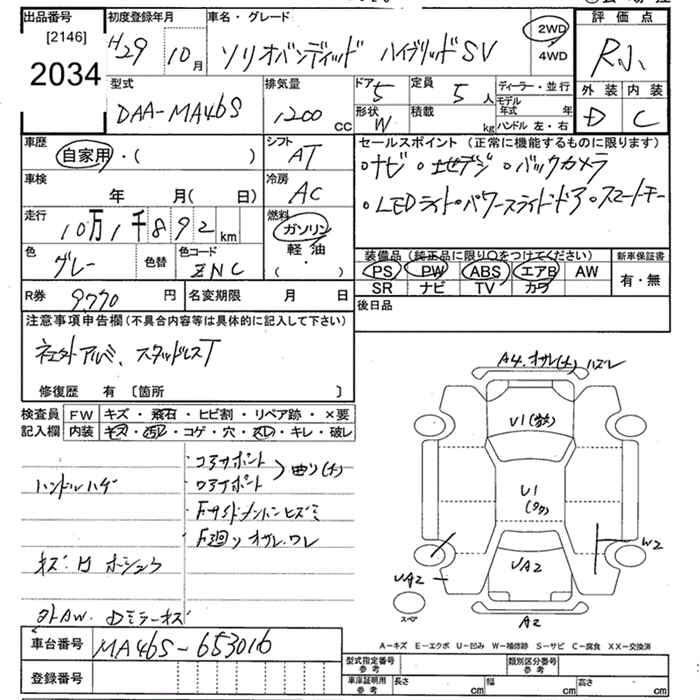 出品番号 初度登録年月 車名・グレード 評価点
[2146]
2034
H29 10月 ソリオバンディッド ハイブリッドSV 2WD 4WD R小
型式 排気量 ドア 5 定員 5人 ディーラー・並行 外装 内装
DAA-MA46S 1200 CC 形状 W 積載 kg モデル年式 年 ハンドル 左・右 D C
車歴 シフト セールスポイント (正常に機能するものに限ります)
自家用・( ) AT ・ナビ ・地デジ ・バックカメラ
車検 冷房 ・LEDライト・パワースライドドア・スマートキー
年 月( 日) AC
走行 燃料
10万1千892km ガソリン
軽油
( )
色 色替 色コード
グレー ZNC
装備品 (純正品に限り○をつけてください) 新車保証書
PS PW ABS エアB AW 有・無
SR ナビ TV カワ
R券 9770円 名変期限 月 日 後日品
注意事項申告欄(不具合内容等は具体的に記入して下さい)
社外アルミ、スタッドレスT
修復歴 有 〔箇所 〕
検査員 FW キズ・飛石・ヒビ割・リペア跡・×要
記入欄 内装 キズ・汚レ・コゲ・穴・スレ・キレ・破レ
・コアサポート
・ロアサポート 曲り(大)
ハンドルハゲ
・Fサイドメンバーヒズミ
・F廻り オサレ・ワレ
キズ・凹 ホショウ
外AW. Dミラーキズ
A4.オサレ(大) ハズレ
U1
U1
W2
UA2
UA2
スペア
A2
A-キズ E-エクボ U-凹み W-補修跡 S-サビ C-腐食 XX-交換済
車台番号 MA46S-653016
登録番号
型式指定番号 参考 類別区分番号 参考
車庫証明用 参考 長さ cm 幅 cm 高さ cm